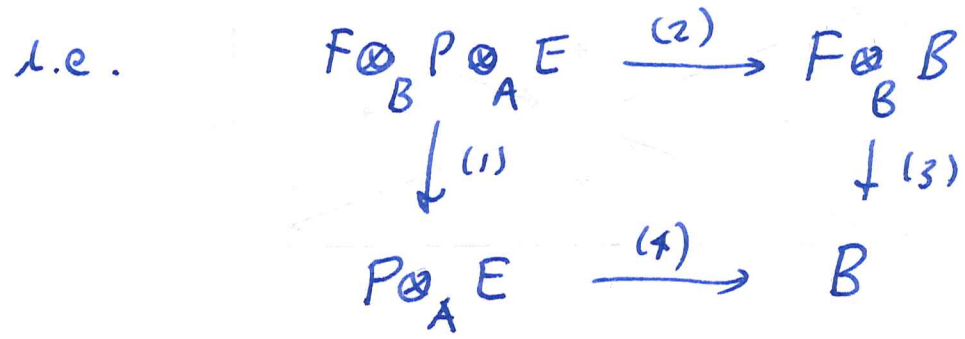 i.e. F⊗_B P⊗_A E →(2) F⊗_B B
↓(1) ↓(3)
P⊗_A E →(4) B